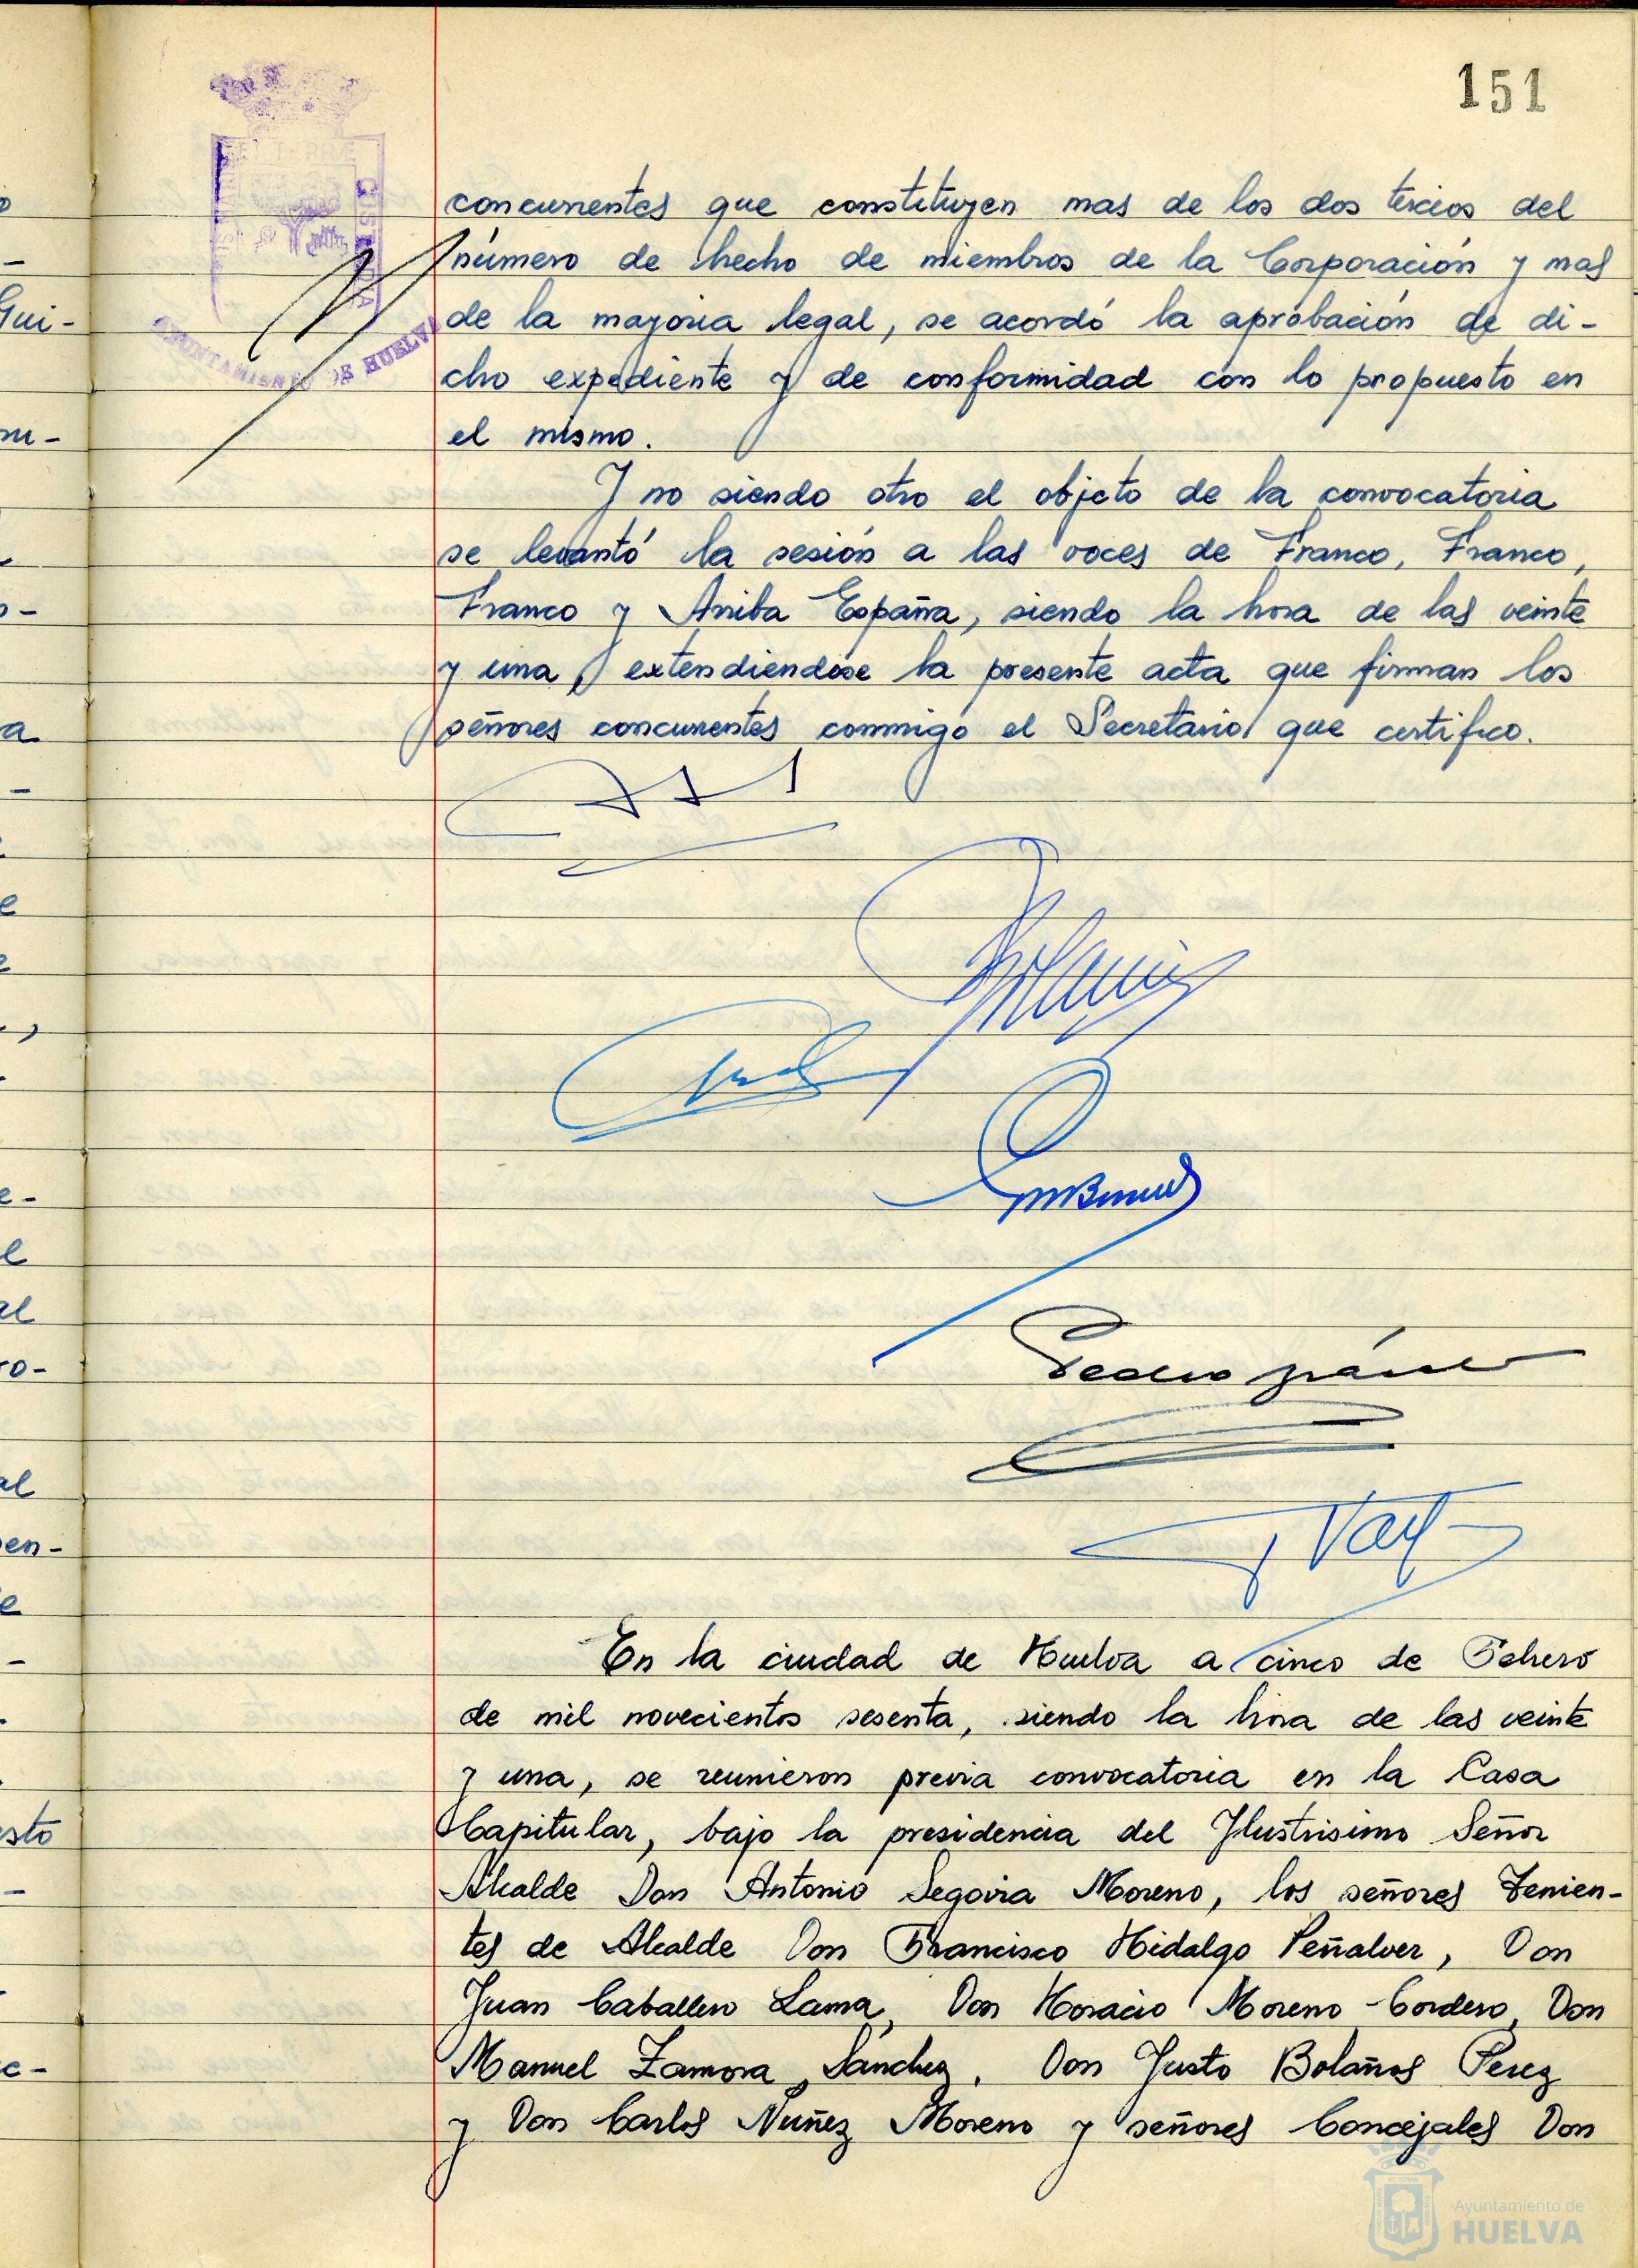 151
AYUNTAMIENTO DE HUELVA
concurrentes que constituyen mas de los dos tercios del
número de hecho de miembros de la Corporación y mas
de la mayoria legal, se acordó la aprobación de di-
cho expediente y de conformidad con lo propuesto en
el mismo.
Y no siendo otro el objeto de la convocatoria
se levantó la sesión a las voces de Franco, Franco,
Franco y Arriba España, siendo la hora de las veinte
y una, extendiéndose la presente acta que firman los
señores concurrentes conmigo el Secretario que certifico.
En la ciudad de Huelva a cinco de Febrero
de mil novecientos sesenta, siendo la hora de las veinte
y una, se reunieron previa convocatoria en la Casa
Capitular, bajo la presidencia del Ilustrisimo Señor
Alcalde Don Antonio Segovia Moreno, los señores Tenien-
tes de Alcalde Don Francisco Hidalgo Peñalver, Don
Juan Caballero Lama, Don Horacio Moreno Cordero, Don
Manuel Zamora Sánchez, Don Justo Bolaños Perez
y Don Carlos Nuñez Moreno y señores Concejales Don
Ayuntamiento de
HUELVA